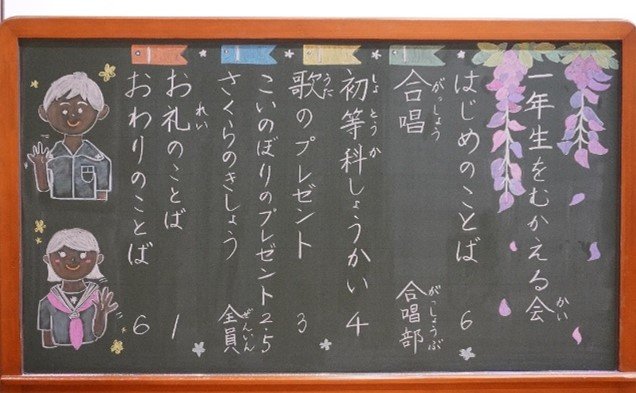 一年生をむかえる会
かい
はじめのことば 6
合唱 合唱部
がっしょう がっしょうぶ
初等科しょうかい 4
しょとうか
歌のプレゼント 3
うた
こいのぼりのプレゼント 2.5
さくらのきしょう 全員
ぜんいん
お礼のことば 1
れい
おわりのことば 6